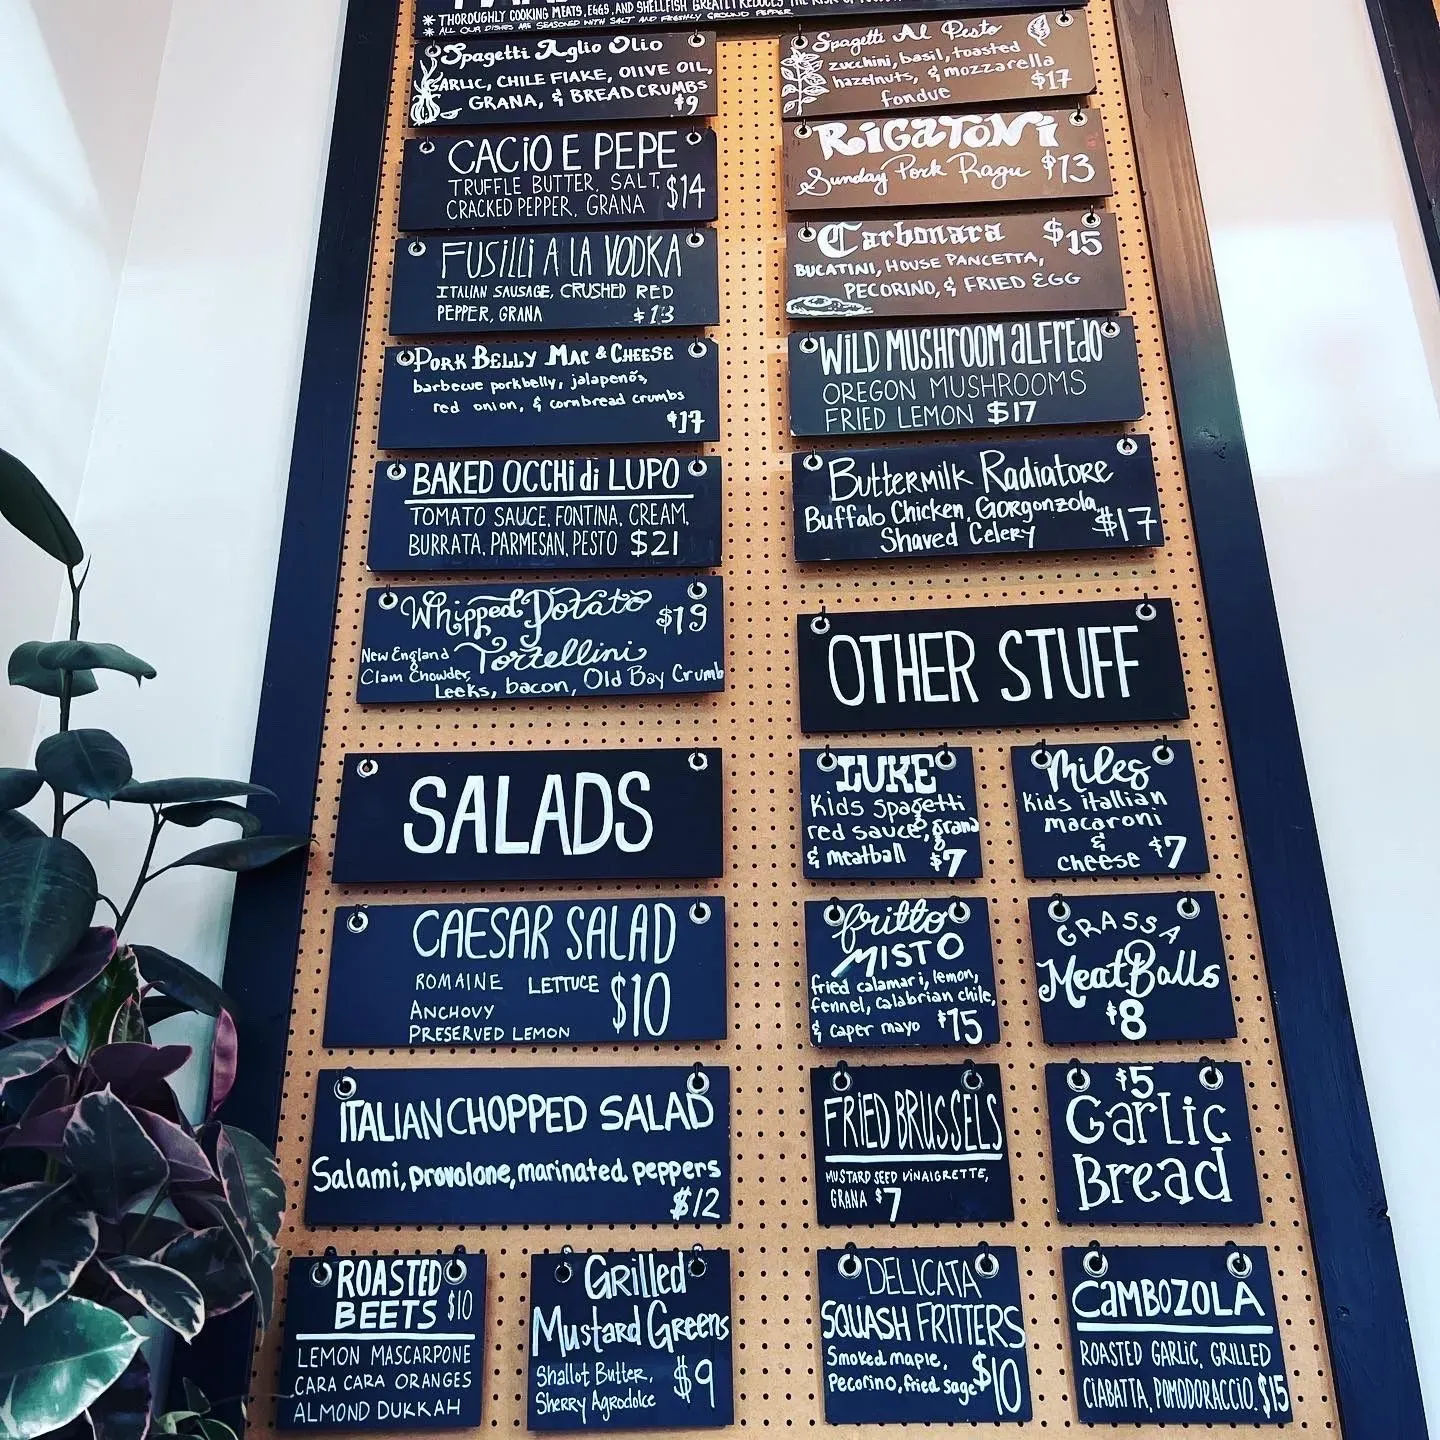 * THOROUGHLY COOKING MEATS, EGGS, AND SHELLFISH GREATLY REDUCES THE RISK OF
* ALL OUR DISHES ARE SEASONED WITH SALT AND FRESHLY GROUND PEPPER
Spagetti Aglio Olio
GARLIC, CHILE FlAKE, OlIVE OIL,
GRANA, & BREADCRUMBS
$9
CACiO E PEPE
TRUFFLE BUTTER, SALT,
CRACKED PEPPER, GRANA $14
FUSiLLi A LA VODKA
ITALIAN SAUSAGE, CRUSHED RED
PEPPER, GRANA $13
PORK BELLY MAC & CHEESE
barbecue porkbelly, jalapeños,
red onion, & cornbread crumbs
$17
BAKED OCCHi di LUPO
TOMATO SAUCE, FONTINA, CREAM,
BURRATA, PARMESAN, PESTO $21
Whipped Potato $19
Tortellini
New England
Clam Chowder,
Leeks, bacon, Old Bay Crumb
SALADS
CAESAR SALAD
ROMAINE LETTUCE $10
ANCHOVY
PRESERVED LEMON
ITALIAN CHOPPED SALAD
Salami, provolone, marinated peppers
$12
ROASTED
BEETS $10
LEMON MASCARPONE
CARA CARA ORANGES
ALMOND DUKKAH
Grilled
Mustard Greens
Shallot Butter,
Sherry Agrodolce $9
Spagetti Al Pesto
zucchini, basil, toasted
hazelnuts, & mozzarella
fondue $17
RiGaToNi
Sunday Pork Ragu $13
Carbonara $15
BUCATINI, HOUSE PANCETTA,
PECORINO, & FRIED EGG
WiLD MUSHROOM aLFREdO
OREGON MUSHROOMS
FRIED LEMON $17
Buttermilk Radiatore
Buffalo Chicken, Gorgonzola,
Shaved Celery $17
OTHER STUFF
LUKE
Kids spagetti
red sauce, grana
& meatball $7
Miles
Kids italian
macaroni
&
cheese $7
fritto
MISTO
fried calamari, lemon,
fennel, Calabrian chile,
& caper mayo $15
GRASSA
MeatBalls
$8
FRiED BRUSSELS
MUSTARD SEED VINAIGRETTE,
GRANA $7
$5
GarLic
Bread
DELICATA
SQUASH FRITTERS
Smoked maple,
Pecorino, fried sage $10
CaMBOZOLA
ROASTED GARLIC, GRILLED
CIABATTA, POMODORACCIO. $15